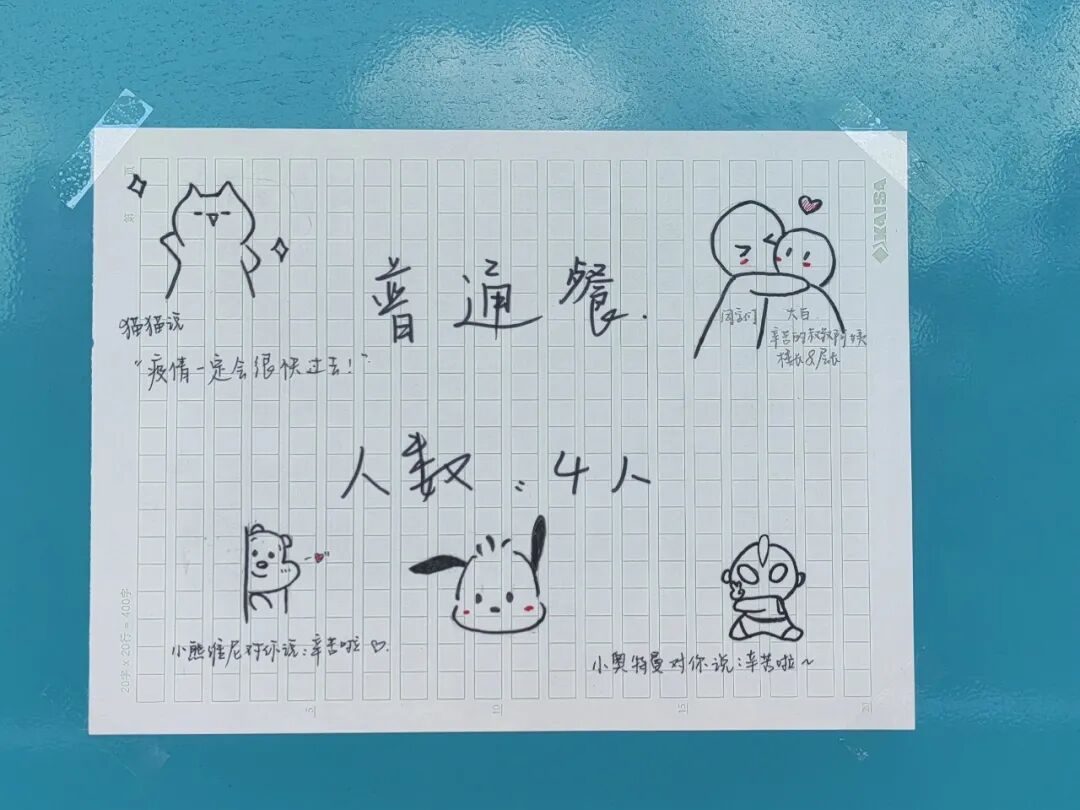 猫猫说
"疫情一定会很快过去!"
普通餐.
大白
辛苦的叔叔阿姨
楼长&层长
人数:4人
小熊维尼对你说:辛苦啦♡.
小奥特曼对你说:辛苦啦~
KAISA
第 页
20字x20行=400字
5
10
15
20